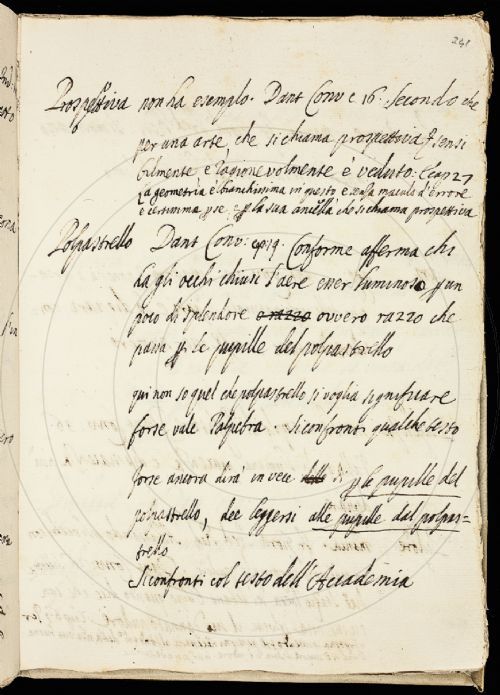 241
Prospettiva non ha esempio. Dant Conv c 16. Secondo che
per una arte, che si chiama prospettiva, e sensi
bilmente, e ragionevolmente è veduto: c. 27
La geometria è bianchissima in questo e senza macula d'errore
e certissima per se e per la sua ancella che si chiama prospettiva
Polpastrello Dant Conv: cp 19. Conforme afferma chi
ha gli occhi chiusi l'aere esser luminoso per un
poco di splendore o razzo ovvero razzo che
passa per le pupille del polpastrello
qui non so quel che polpastrello si voglia significare
forse vale Palpebra. Si confronti qualche testo
forse ancora dirà in vece di per le pupille del
polpastrello, dee leggersi alle pupille dal polpas=
trello
Si confronti col testo dell'Accademia